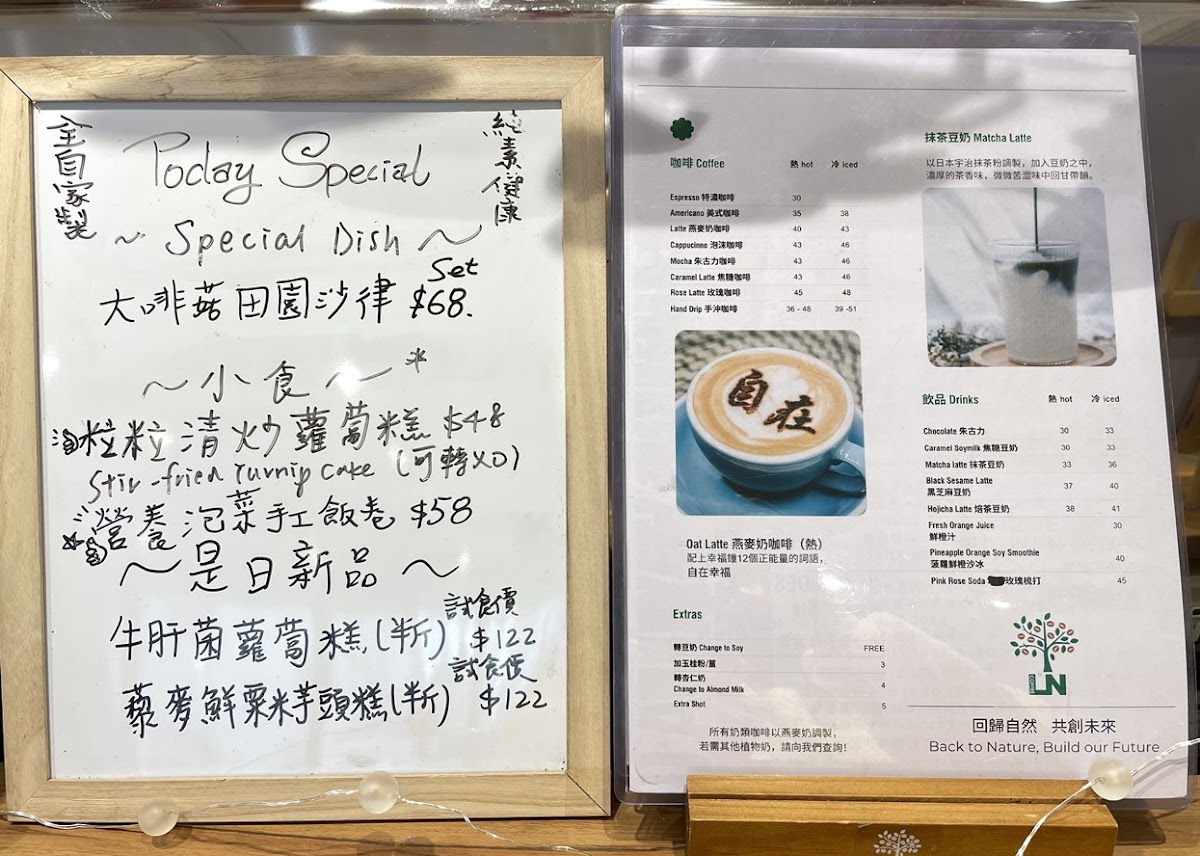 全自家製
純素健康
Today Special
~ Special Dish ~
Set
大啡菇田園沙律 $68.
~小食~*
粒粒清炒蘿蔔糕 $48
Stir-fried turnip cake (可轉XO)
營養泡菜手工飯卷 $58
~是日新品~
試食價
牛肝菌蘿蔔糕(半斤) $122
試食價
藜麥鮮粟米芋頭糕(半斤) $122
咖啡 Coffee 熱 hot 冷 iced
Espresso 特濃咖啡 30
Americano 美式咖啡 35 38
Latte 燕麥奶咖啡 40 43
Cappucinno 泡沫咖啡 43 46
Mocha 朱古力咖啡 43 46
Caramel Latte 焦糖咖啡 43 46
Rose Latte 玫瑰咖啡 45 48
Hand Drip 手沖咖啡 36 - 48 39 -51
自在
Oat Latte 燕麥奶咖啡（熱）
配上幸福鐘12個正能量的詞語，
自在幸福
Extras
轉豆奶 Change to Soy FREE
加玉桂粉/薑 3
轉杏仁奶
Change to Almond Milk 4
Extra Shot 5
所有奶類咖啡以燕麥奶調製，
若需其他植物奶，請向我們查詢!
抹茶豆奶 Matcha Latte
以日本宇治抹茶粉調製，加入豆奶之中，
濃厚的茶香味，微微苦澀味中回甘帶韻。
飲品 Drinks 熱 hot 冷 iced
Chocolate 朱古力 30 33
Caramel Soymilk 焦糖豆奶 30 33
Matcha latte 抹茶豆奶 33 36
Black Sesame Latte
黑芝麻豆奶 37 40
Hojicha Latte 焙茶豆奶 38 41
Fresh Orange Juice 30
鮮橙汁
Pineapple Orange Soy Smoothie
菠蘿鮮橙沙冰 40
Pink Rose Soda 玫瑰梳打 45
LN
COFFEE
回歸自然 共創未來
Back to Nature, Build our Future